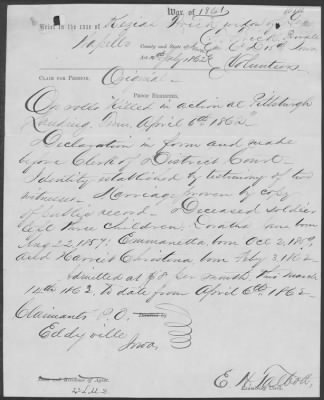 War of 1861
Brief in the case of Keziah Fried widow of
Wapello County and State Iowa
Act July 1862 Volunteers
CLAIM FOR PENSION. Original
PROOF EXHIBITED.
On rolls "Killed in action at Pittsburgh
Landing, Tenn, April 6th 1862"
Declaration in form and made
before Clerk of District Court –
Identity established by testimony of two
witnesses – Marriage proven by copy
of Public record – Deceased soldier
left three children, born
Aug 22, 1857; Emmanetta born Oct 2, 1859
and Harriet Christena born Feby 3, 1862
Admitted at $8 per month, this March
14th 1863, to date from April 6th 1862 –
Claimants P.O.
Eddyville
Iowa
E. H. Talbott,
Examining Clerk.
Name and Residence of Agent.